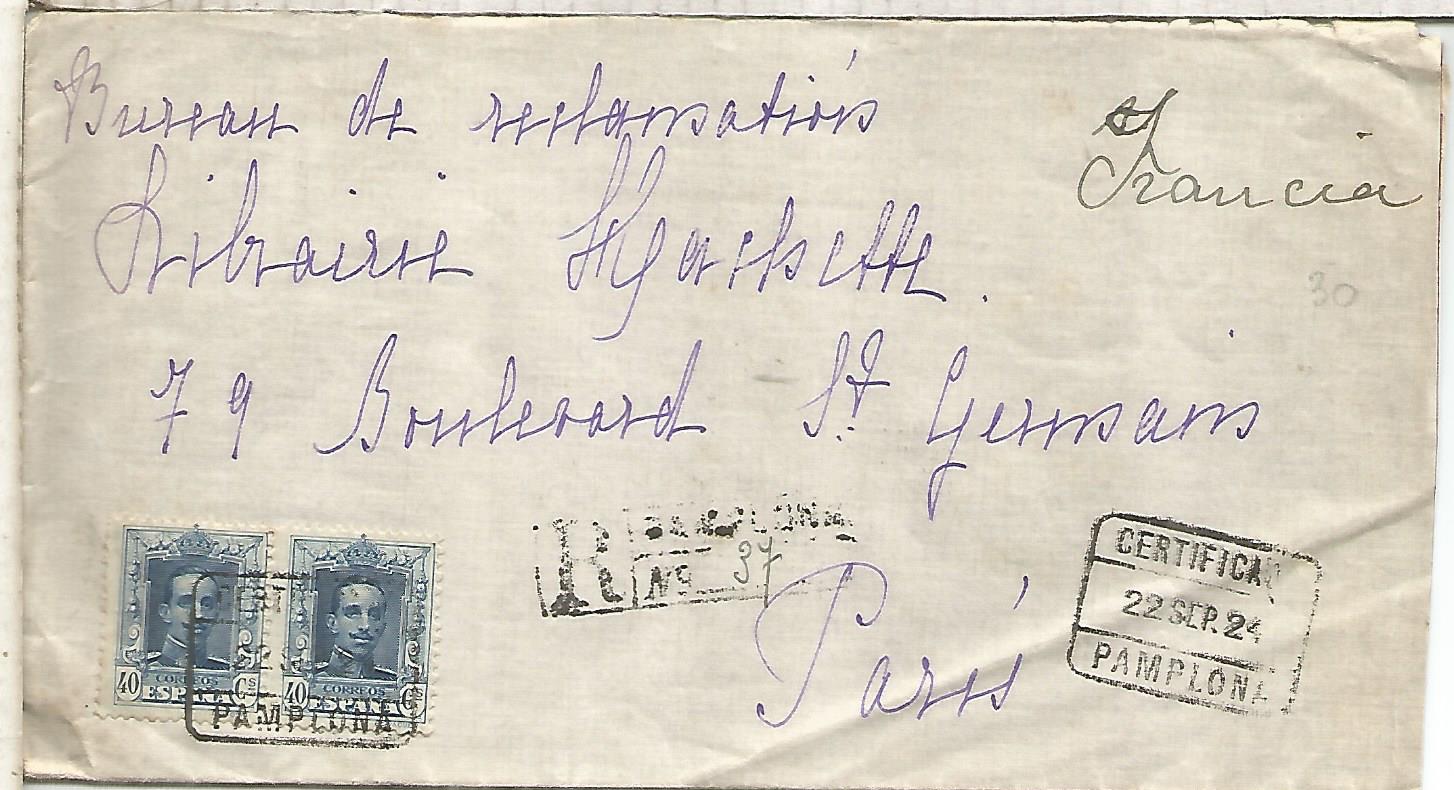 Bureau de reclamatións
Francia
Librairie Hachette.
30
79 Boulevard St. Germans
R PAMPLONA
Nº 37
CERTIFICAD
22 SEP. 24
PAMPLONA
París
40 Cs 40 Cs
CORREOS CORREOS
ESPAÑA ESPAÑA
CERT
22 S
PAMPLONA